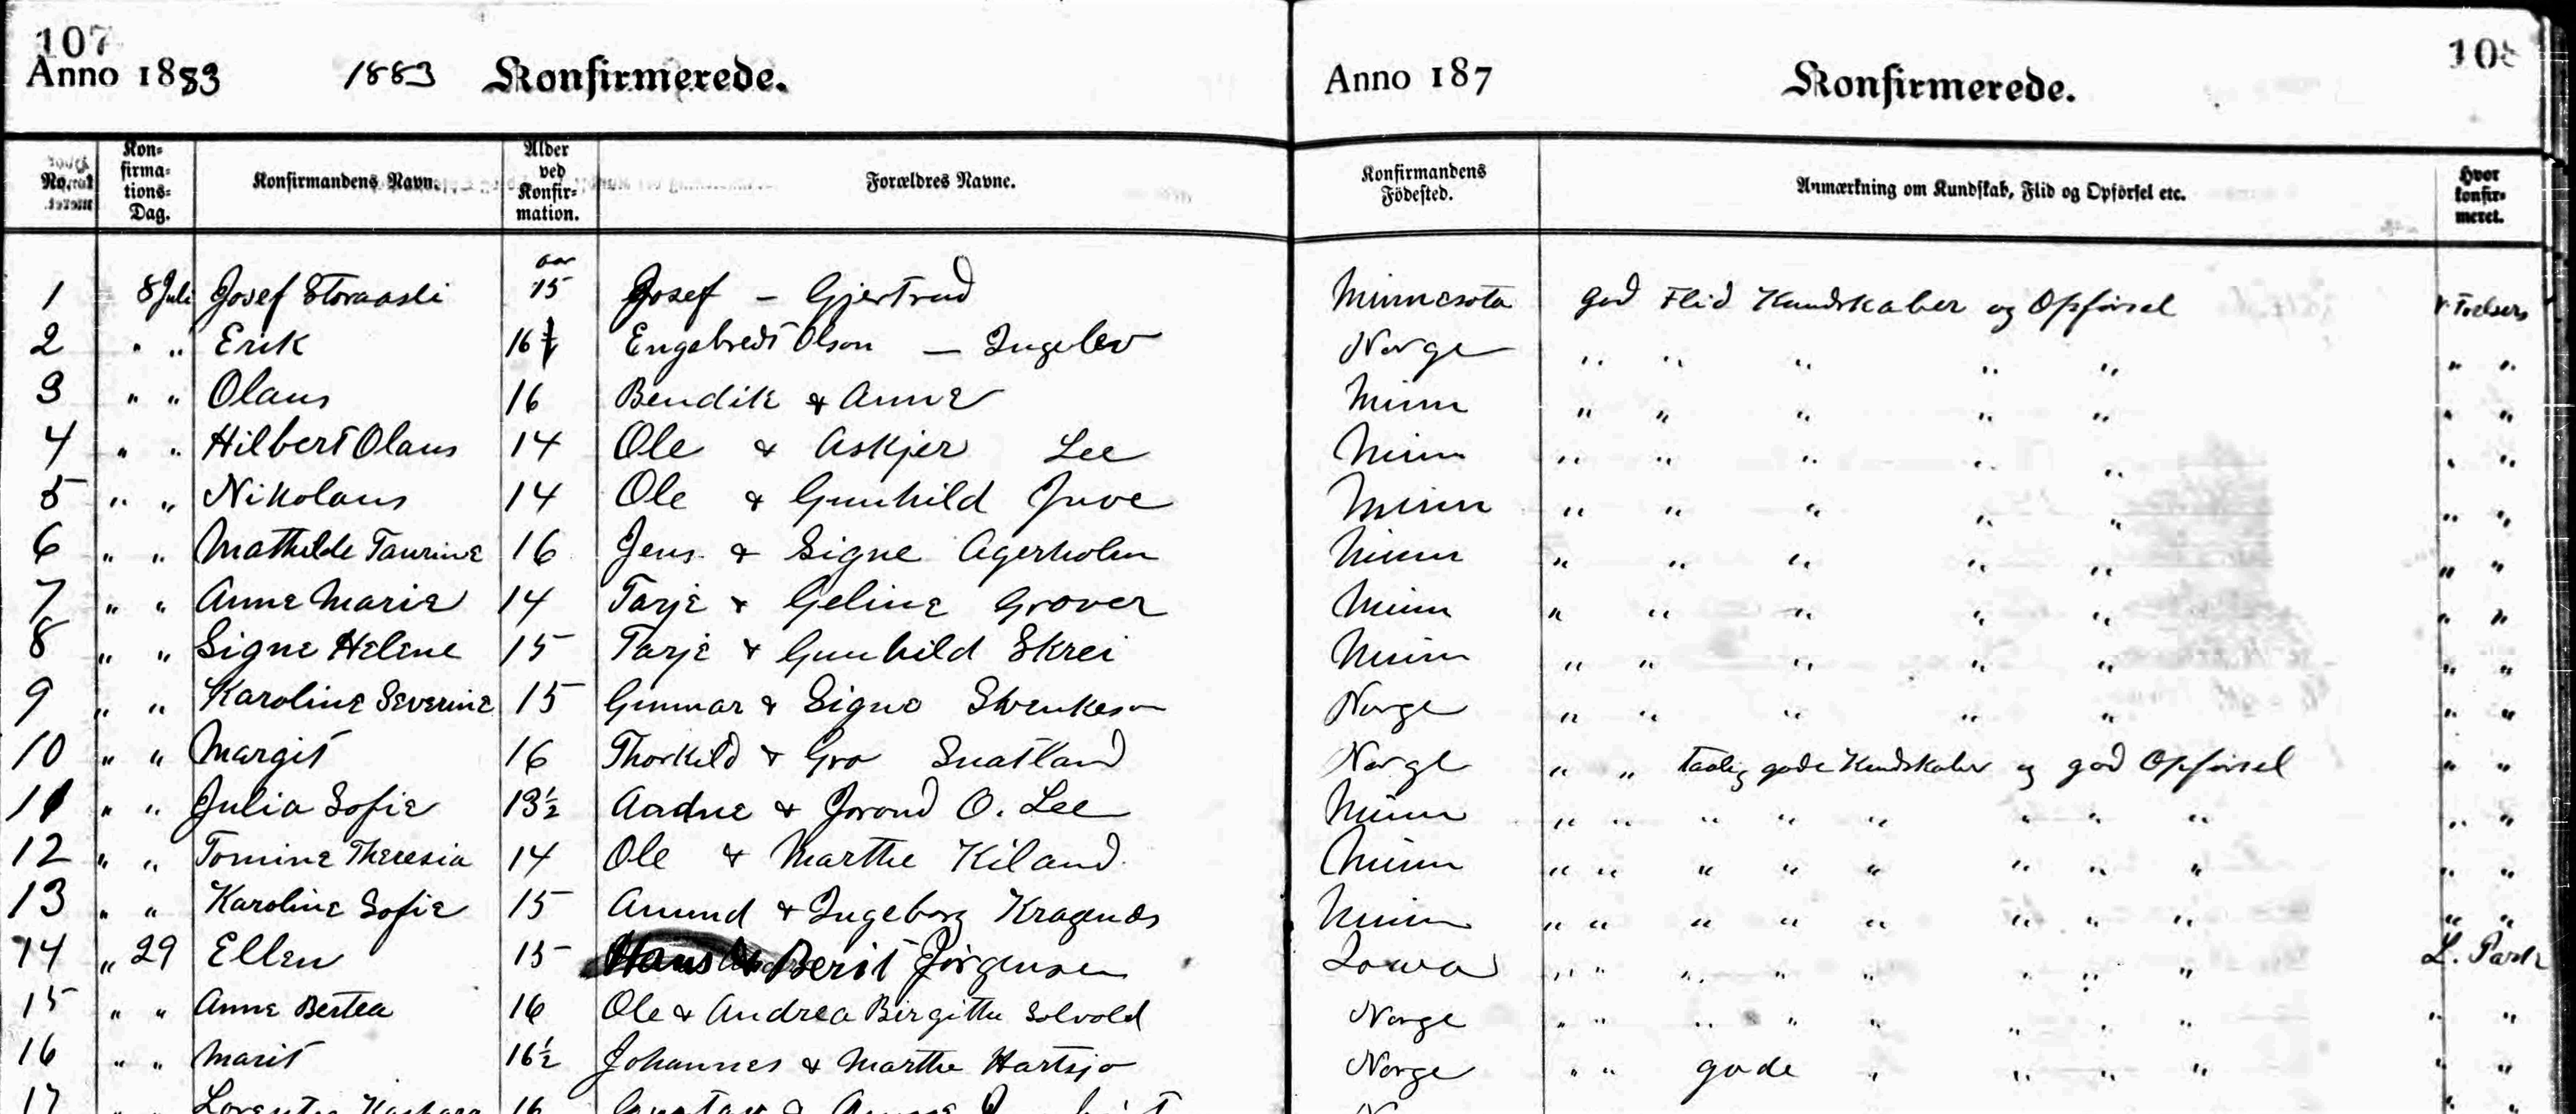 107
Anno 1883 1883 Konfirmerede.
Anno 187 Konfirmerede.
108
No. Kon-firma-tions-Dag. Konfirmandens Navn. Alder ved Konfir-mation. Forældres Navne. Konfirmandens Födested. Anmærkning om Kundskab, Flid og Opförsel etc. Hvor konfir-meret.
aar
1 8 Juli Josef Storaasli 15 Josef — Gjertrud Minnesota god Flid Kundskaber og Opförsel
2 " " Erik 16 Engebredt Olson — Ingelev Norge " " " " " " "
3 " " Olaus 16 Bendik & Anne Minn " " " " " " "
4 " " Hilbert Olaus 14 Ole & Askjer Lee Minn " " " " " " "
5 " " Nikolaus 14 Ole & Gunhild Juve Minn " " " " " " "
6 " " Mathilde Taurine 16 Jens & Signe Agerholm Minn " " " " " " "
7 " " Anne Marie 14 Tarje & Geline Grover Minn " " " " " " "
8 " " Signe Helene 15 Tarje & Gunhild Skrei Minn " " " " " " "
9 " " Karoline Severine 15 Gunnar & Signe Norge " " " " " " "
10 " " Margit 16 Thorkild & Gro Snatland Norge " " taalig gode Kundskaber og god Opförsel " "
11 " " Julia Sofie 13½ Aadne & Jorond O. Lee Minn " " " " " " " " " "
12 " " Tomine Theresia 14 Ole & Marthe Kiland Minn " " " " " " " " " "
13 " " Karoline Sofie 15 Amund & Ingeborg Minn " " " " " " " " " "
14 " 29 Ellen 15 Hans & Berit Jörgensen Iowa " " " " " " " " L. Park
15 " " Anne Bertea 16 Ole & Andrea Birgitte Solvold Norge " " " " " " " " " "
16 " " Marit 16½ Johannes & Marthe Hartsjo Norge " " gode " " " " " "
17 " " 16